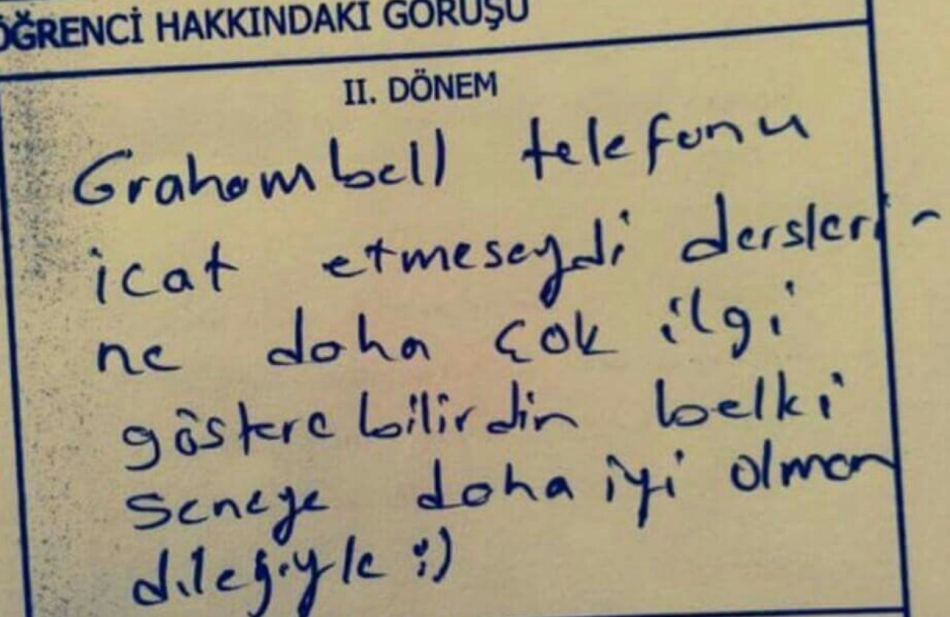 ÖĞRENCİ HAKKINDAKİ GÖRÜŞÜ
II. DÖNEM
Grahambell telefonu
icat etmeseydi dersleri-
ne daha çok ilgi
gösterebilirdin belki
seneye daha iyi olman
dileğiyle :)